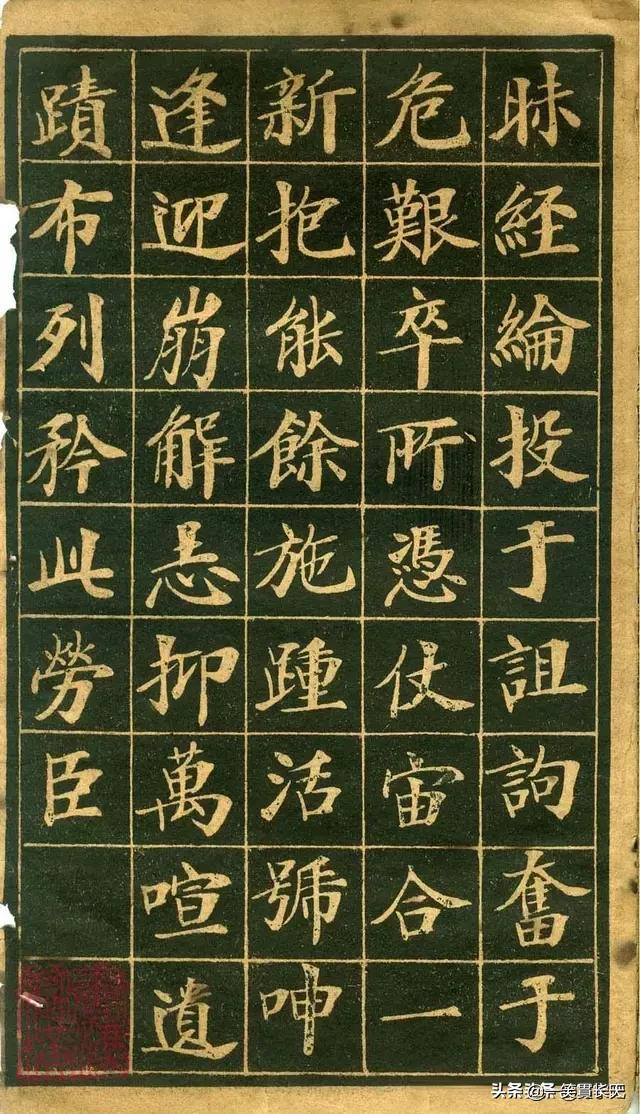 昧經綸投于詛詢奮于
危艱卒所憑仗宙合一
新抱能餘施踵活號呻
逢迎崩解惎抑萬喧遺
蹟布列矜此勞臣
头条@一笑貫华巴